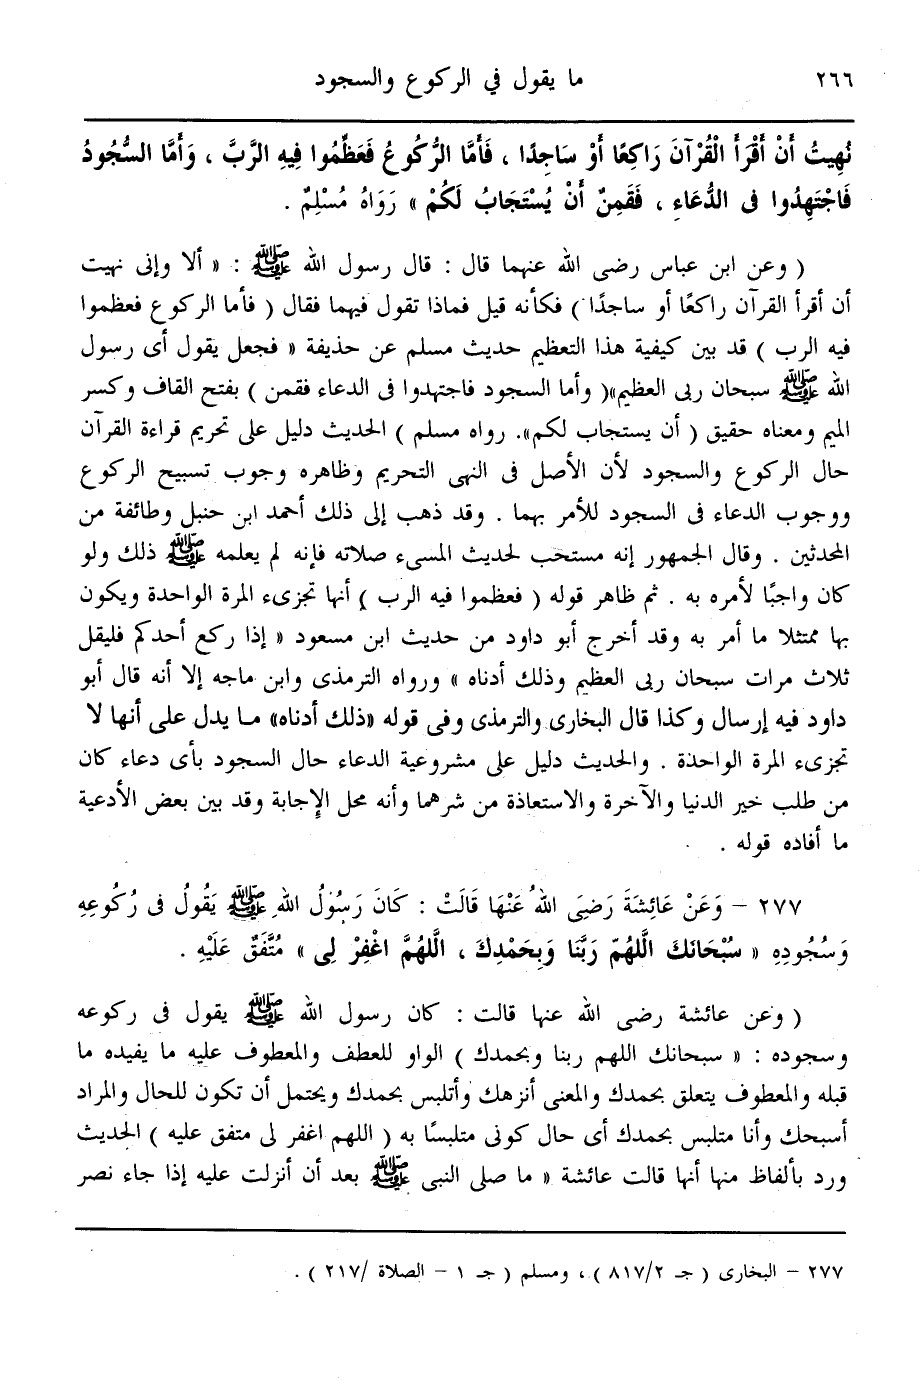 ٢٦٦ ما يقول في الركوع والسجود
نُهِيتُ أَنْ أَقْرَأَ الْقُرْآنَ رَاكِعًا أَوْ سَاجِدًا ، فَأَمَّا الرُّكُوعُ فَعَظِّمُوا فِيهِ الرَّبَّ ، وَأَمَّا السُّجُودُ
فَاجْتَهِدُوا فى الدُّعَاءِ ، فَقَمِنٌ أَنْ يُسْتَجَابُ لَكُمْ » رَوَاهُ مُسْلِمٌ .
( وعن ابن عباس رضى الله عنهما قال : قال رسول الله ﷺ : « ألا وإنى نهيت
أن أقرأ القرآن راكعًا أو ساجدًا ) فكأنه قيل فماذا تقول فيهما فقال ( فأما الركوع فعظموا
فيه الرب ) قد بين كيفية هذا التعظيم حديث مسلم عن حذيفة « فجعل يقول أى رسول
الله ﷺ سبحان ربى العظيم»( وأما السجود فاجتهدوا فى الدعاء فقمن ) بفتح القاف وكسر
الميم ومعناه حقيق ( أن يستجاب لكم». رواه مسلم ) الحديث دليل على تحريم قراءة القرآن
حال الركوع والسجود لأن الأصل فى النهى التحريم وظاهره وجوب تسبيح الركوع
ووجوب الدعاء فى السجود للأمر بهما . وقد ذهب إلى ذلك أحمد ابن حنبل وطائفة من
المحدثين . وقال الجمهور إنه مستحب لحديث المسىء صلاته فإنه لم يعلمه ﷺ ذلك ولو
كان واجبًا لأمره به . ثم ظاهر قوله ( فعظموا فيه الرب ) أنها تجزىء المرة الواحدة ويكون
بها ممتثلا ما أمر به وقد أخرج أبو داود من حديث ابن مسعود « إذا ركع أحدكم فليقل
ثلاث مرات سبحان ربى العظيم وذلك أدناه » ورواه الترمذى وابن ماجه إلا أنه قال أبو
داود فيه إرسال وكذا قال البخارى والترمذى وفى قوله «ذلك أدناه» ما يدل على أنها لا
تجزىء المرة الواحدة . والحديث دليل على مشروعية الدعاء حال السجود بأى دعاء كان
من طلب خير الدنيا والآخرة والاستعاذة من شرهما وأنه محل الإجابة وقد بين بعض الأدعية
ما أفاده قوله .
٢٧٧ – وَعَنْ عَائِشَةَ رَضِىَ اللهُ عَنْهَا قَالَتْ : كَانَ رَسُولُ اللهِ ﷺ يَقُولُ فى رُكُوعِهِ
وَسُجُودِهِ « سُبْحَانَكَ الَّلهُمّ رَبَّنَا وَبِحَمْدِكَ ، الَّلهُمَّ اغْفِرْ لِى » مُتَّفَقٌ عَلَيْهِ .
( وعن عائشة رضى الله عنها قالت : كان رسول الله ﷺ يقول فى ركوعه
وسجوده : « سبحانك اللهم ربنا وبحمدك ) الواو للعطف والمعطوف عليه ما يفيده ما
قبله والمعطوف يتعلق بحمدك والمعنى أنزهك وأتلبس بحمدك ويحتمل أن تكون للحال والمراد
أسبحك وأنا متلبس بحمدك أى حال كونى متلبسًا به ( اللهم اغفر لى متفق عليه ) الحديث
ورد بألفاظ منها أنها قالت عائشة « ما صلى النبى ﷺ بعد أن أنزلت عليه إذا جاء نصر
٢٧٧ – البخارى ( جـ ٨١٧/٢ ) ، ومسلم ( جـ ١ – الصلاة /٢١٧ ) .